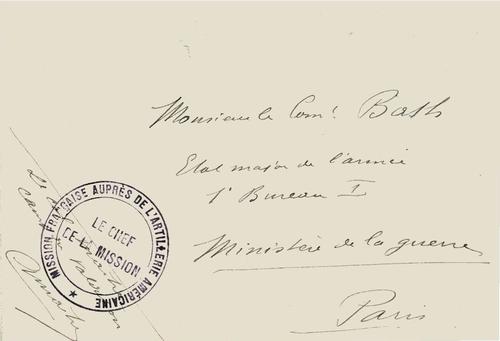 Monsieur le Comt Bash
Etat major de l'armée
1e Bureau I
Ministère de la guerre
Paris
MISSION FRANÇAISE AUPRÈS DE L'ARTILLERIE AMÉRICAINE
LE CHEF
DE LA MISSION